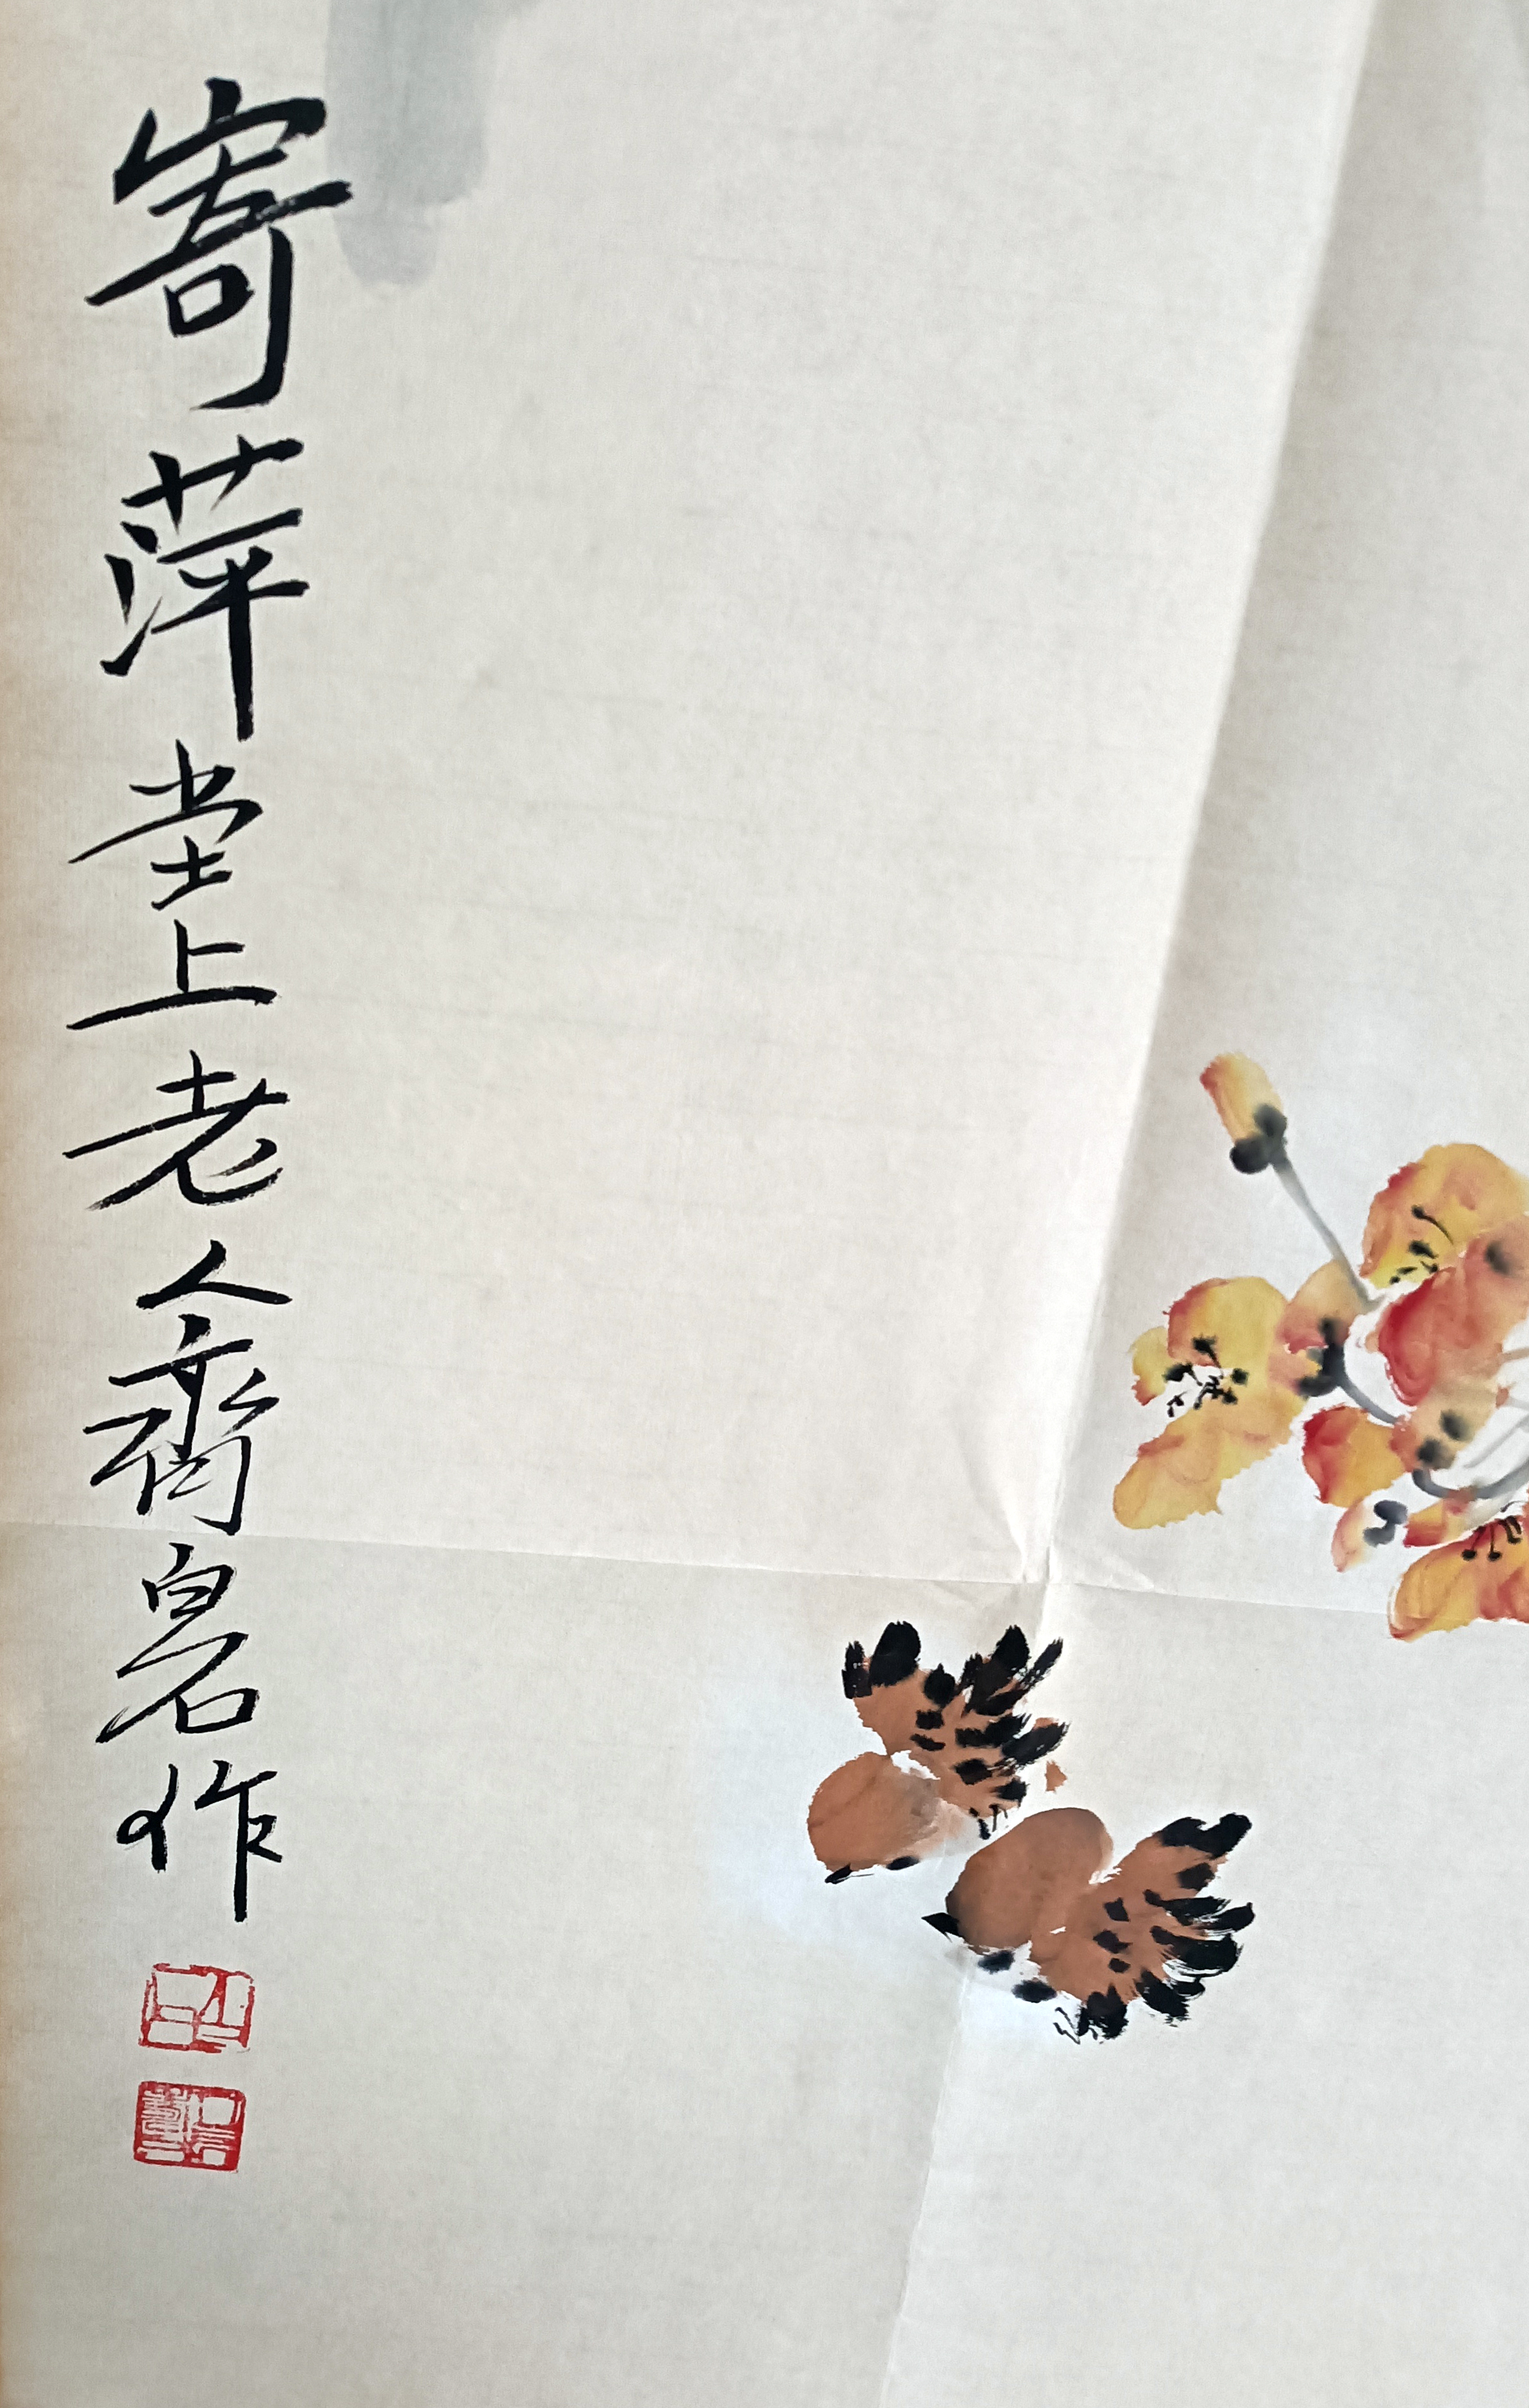 寄萍堂上老人齊白石作